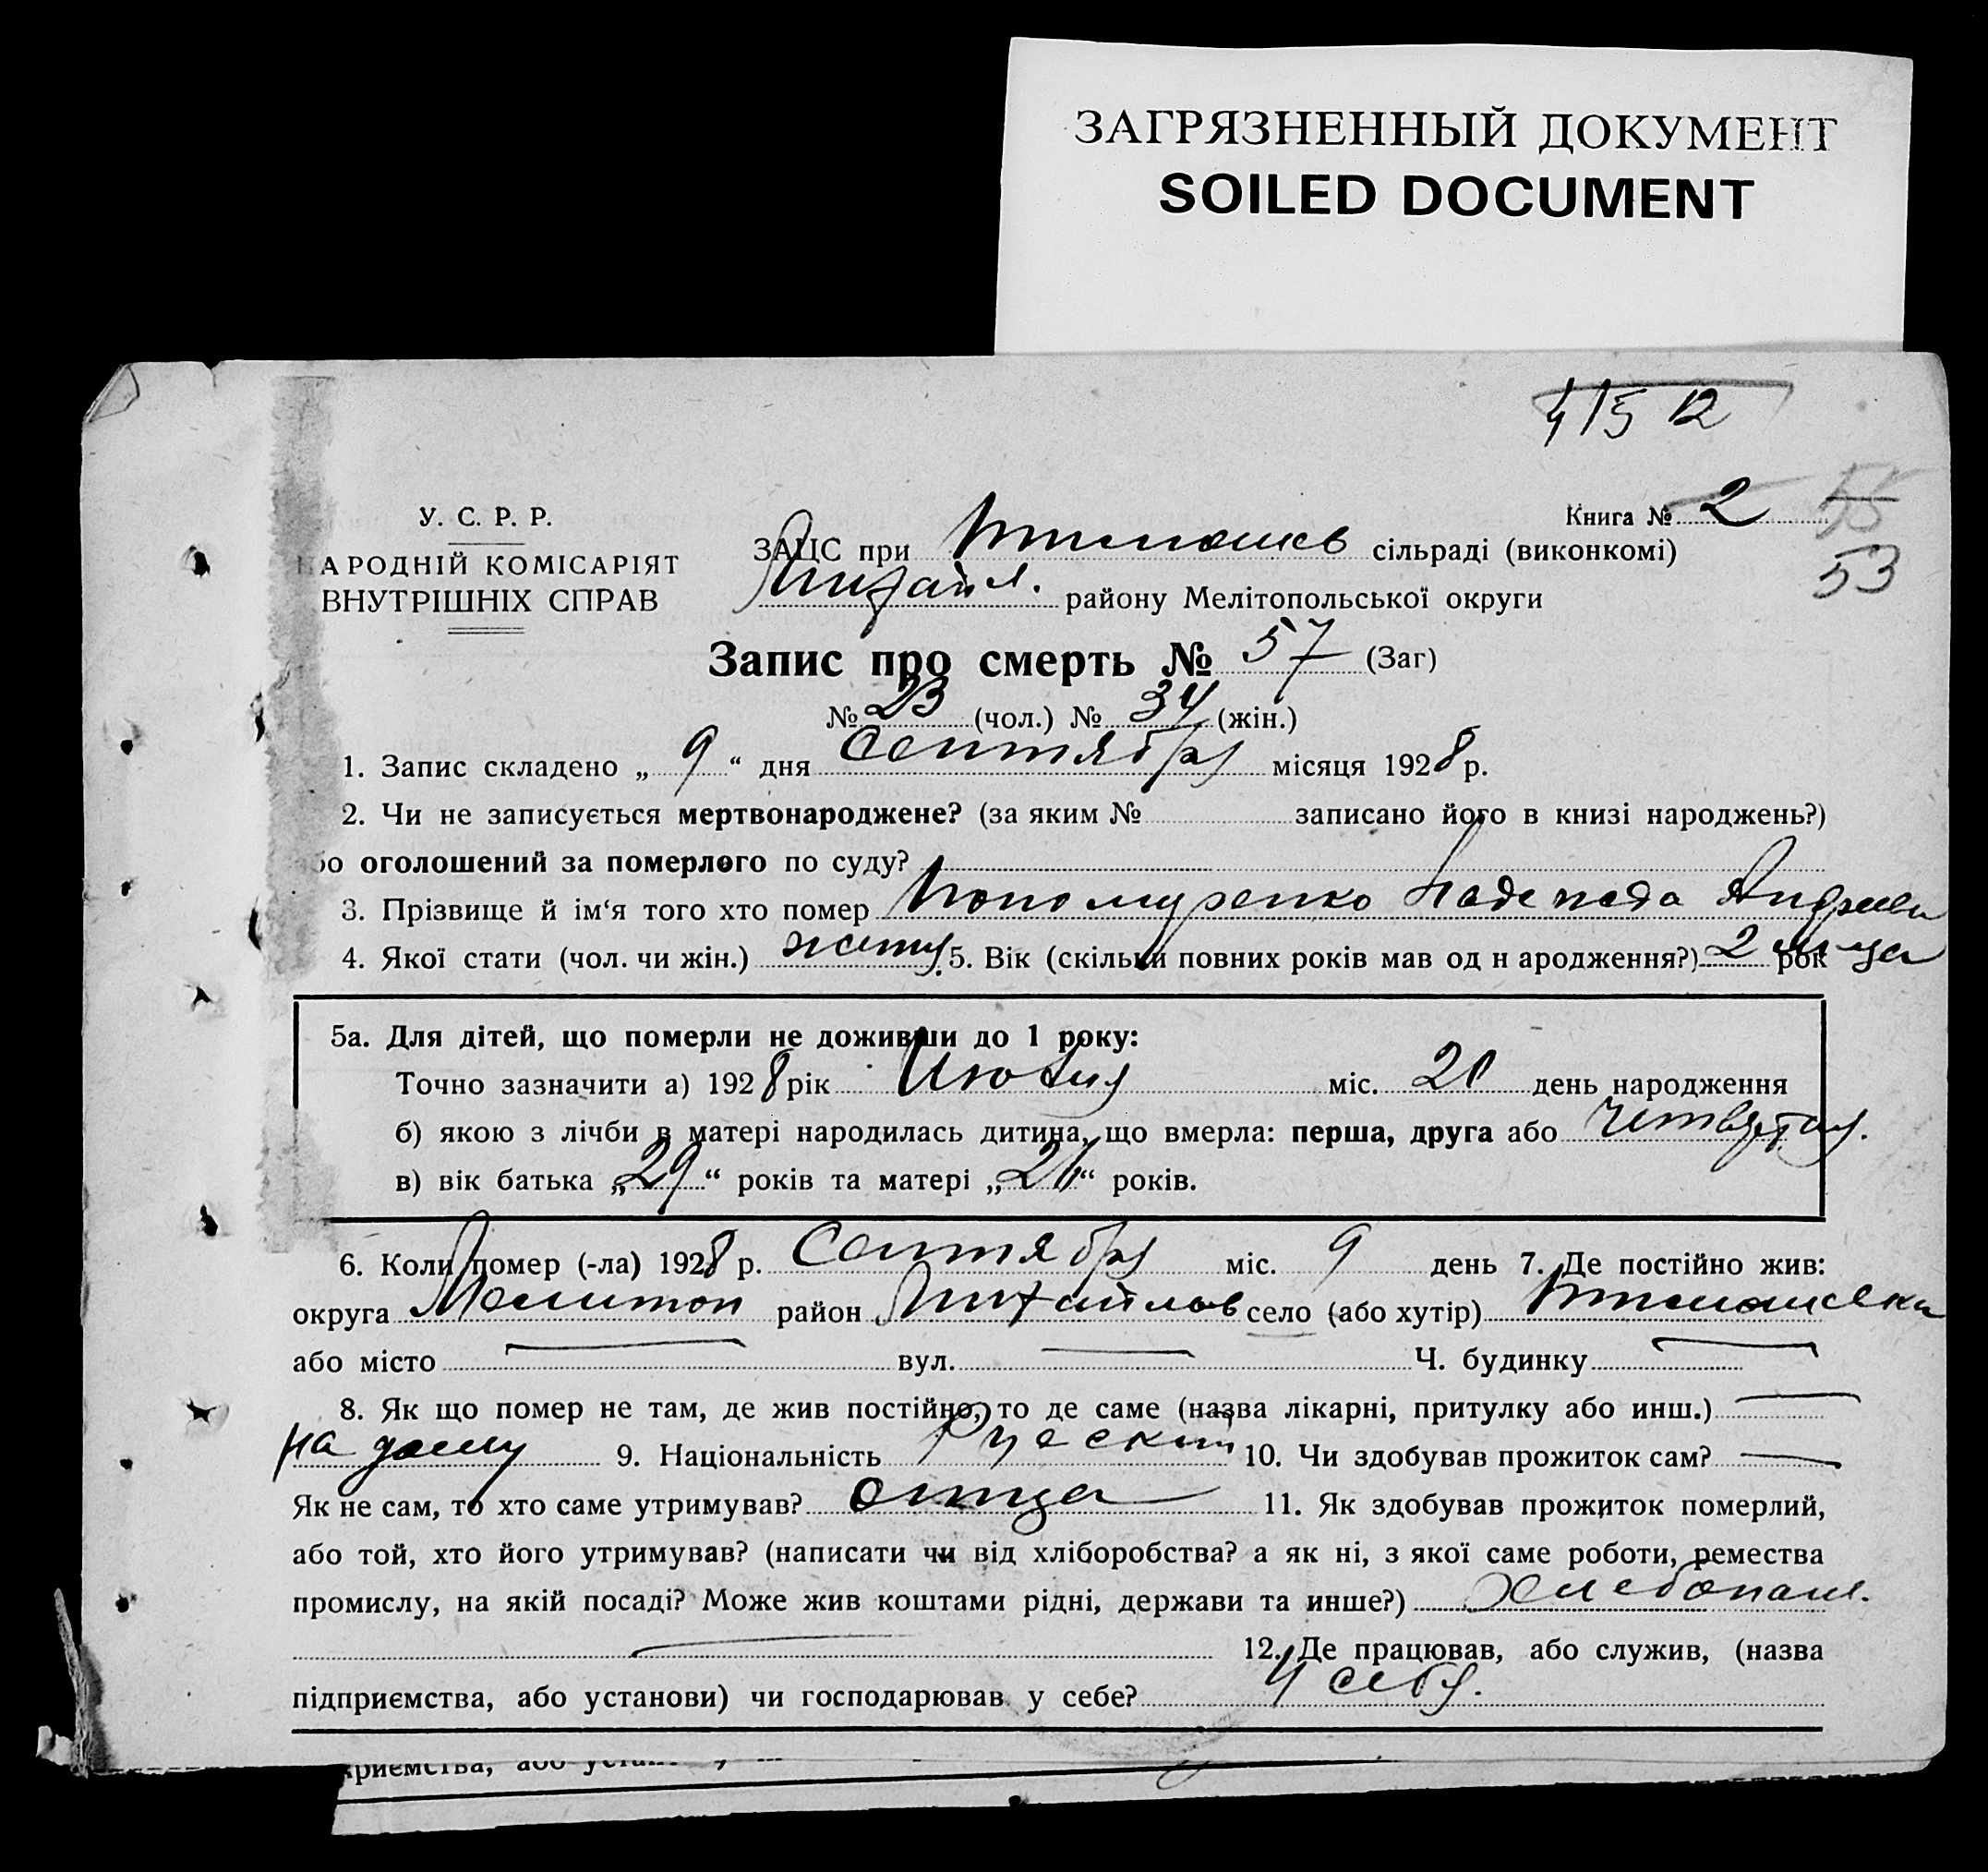 ЗАГРЯЗНЕННЫЙ ДОКУМЕНТ
SOILED DOCUMENT
415 12
У. С. Р. Р.
Книга № 2
55
53
НАРОДНІЙ КОМІСАРІЯТ
ВНУТРІШНІХ СПРАВ
ЗАЦС при сільраді (виконкомі)
Михайл. району Мелітопольської округи
Запис про смерть № 57 (Заг)
№ 23 (чол.) № 34 (жін.)
1. Запис складено „ 9 “ дня Сентября місяця 1928 р.
2. Чи не записується мертвонароджене? (за яким № записано його в книзі народжень?)
бо оголошений за померлого по суду?
3. Прізвище й ім‘я того хто помер Надежда
4. Якої стати (чол. чи жін.) 5. Вік (скільки повних років мав од н ародження?) 2 м-ца рок
5а. Для дітей, що померли не доживши до 1 року:
Точно зазначити а) 1928 рік міс. день народження
б) якою з лічби в матері народилась дитина, що вмерла: перша, друга або четвертая.
в) вік батька „ 29 “ років та матері „ “ років.
6. Коли помер (-ла) 1928 р. Сентября міс. 9 день 7. Де постійно жив:
округа Мелитоп район Михайлов село (або хутір)
або місто — вул. — Ч. будинку —
8. Як що помер не там, де жив постійно, то де саме (назва лікарні, притулку або инш.) —
на дому 9. Національність Русский 10. Чи здобував прожиток сам? —
Як не сам, то хто саме утримував? отца 11. Як здобував прожиток померлий,
або той, хто його утримував? (написати чи від хліборобства? а як ні, з якої саме роботи, ремества
промислу, на якій посаді? Може жив коштами рідні, держави та инше?) хлебопаш.
— 12. Де працював, або служив, (назва
підприємства, або установи) чи господарював у себе? у себя.